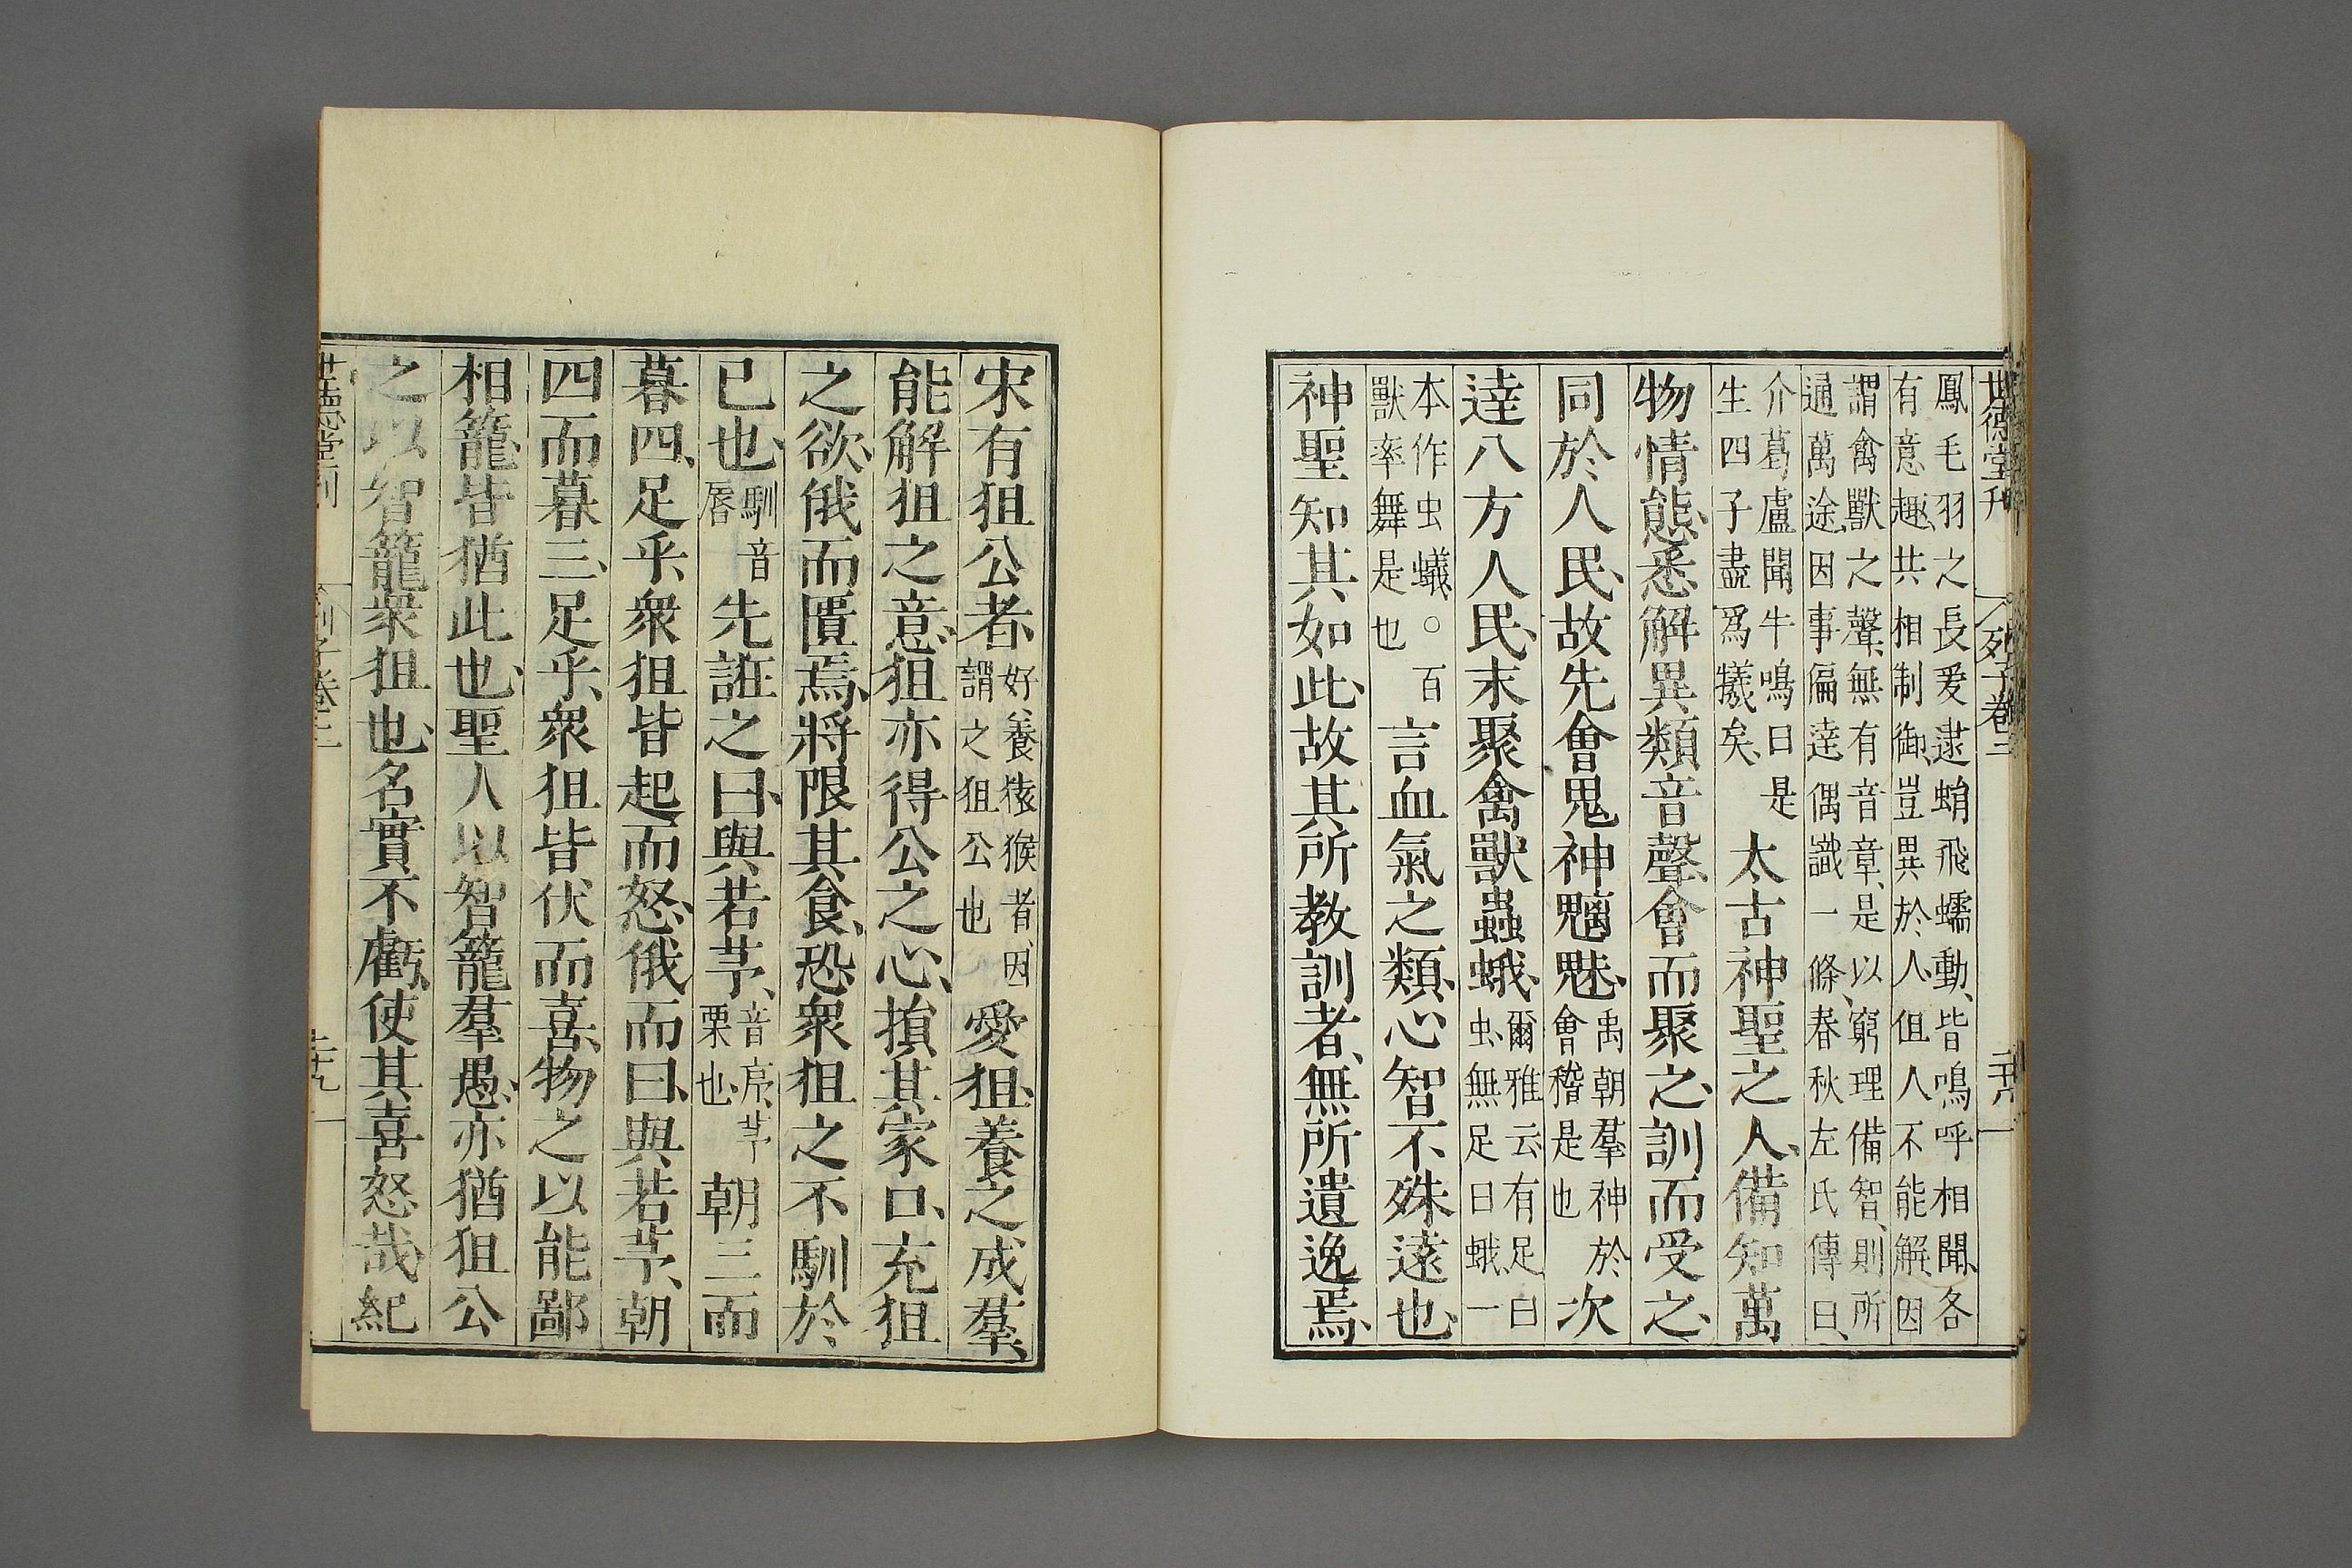 世德堂刋
列子卷二
二十八
鳳毛羽之長爰逮蛸飛蠕動、皆鳴呼相聞、各
有意趣、共相制御、豈異於人、但人不能解、因
謂禽獸之聲、無有音章、是以窮理備智、則所
通萬途、因事偏達、偶識一條、春秋左氏傳曰、
介葛盧聞牛鳴曰是
生四子盡爲犧矣、
太古神聖之人、備知萬
物情態、悉解異類音聲、會而聚之、訓而受之、
同於人民、故先會鬼神魑魅、
禹朝羣神於
會稽是也
次
達八方人民、末聚禽獸蟲蛾、
爾雅云有足曰
虫、無足曰蛾、一
本作虫蟻、○百
獸率舞是也
言血氣之類、心智不殊遠也、
神聖知其如此、故其所教訓者、無所遺逸焉、
宋有狙公者、
好養猿猴者、因
謂之狙公也
愛狙、養之成羣、
能解狙之意、狙亦得公之心、損其家口、充狙
之欲、俄而匱焉、將限其食、恐衆狙之不馴於
已也、
馴音
唇
先誑之曰、與若芧、
音序、芧
栗也、
朝三而
暮四、足乎、衆狙皆起而怒、俄而曰、與若芧、朝
四而暮三、足乎、衆狙皆伏而喜、物之以能鄙
相籠、皆猶此也、聖人以智籠羣愚、亦猶狙公
之以智籠衆狙也、名實不虧、使其喜怒哉紀
世德堂刊
列子卷二
二十九